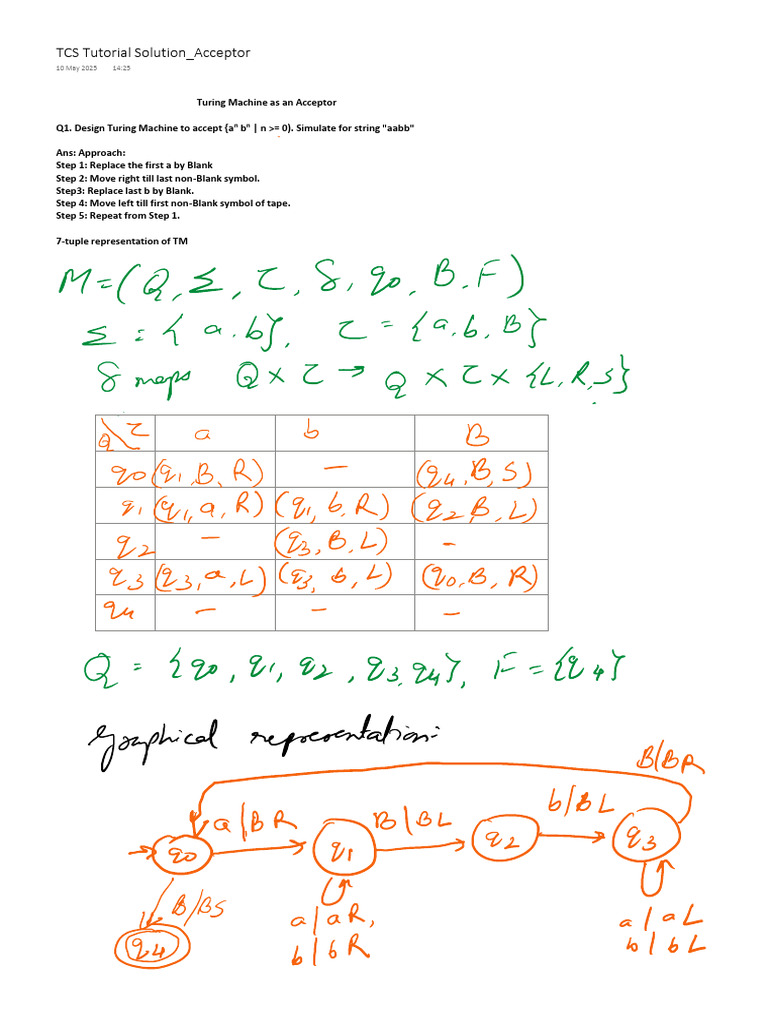 TCS Tutorial Solution_Acceptor
10 May 2025 14:25
Turing Machine as an Acceptor
Q1. Design Turing Machine to accept {aⁿ bⁿ | n >= 0). Simulate for string "aabb"
Ans: Approach:
Step 1: Replace the first a by Blank
Step 2: Move right till last non-Blank symbol.
Step3: Replace last b by Blank.
Step 4: Move left till first non-Blank symbol of tape.
Step 5: Repeat from Step 1.
7-tuple representation of TM
M = (Q, Σ, τ, δ, q0, B, F)
Σ = { a, b}, τ = {a, b, B}
δ maps Q × τ → Q × τ × {L, R, S}
Q τ a b B
q0 (q1, B, R) – (q4, B, S)
q1 (q1, a, R) (q1, b, R) (q2 B, L)
q2 – (q3, B, L) –
q3 (q3, a, L) (q3, b, L) (q0, B, R)
q4 – – –
Q = {q0, q1, q2, q3, q4}, F = {q4}
Graphical representation:
B/BR
a/BR B/BL b/BL
q0 q1 q2 q3
B/BS
q4
a/aR, a/aL
b/bR b/bL